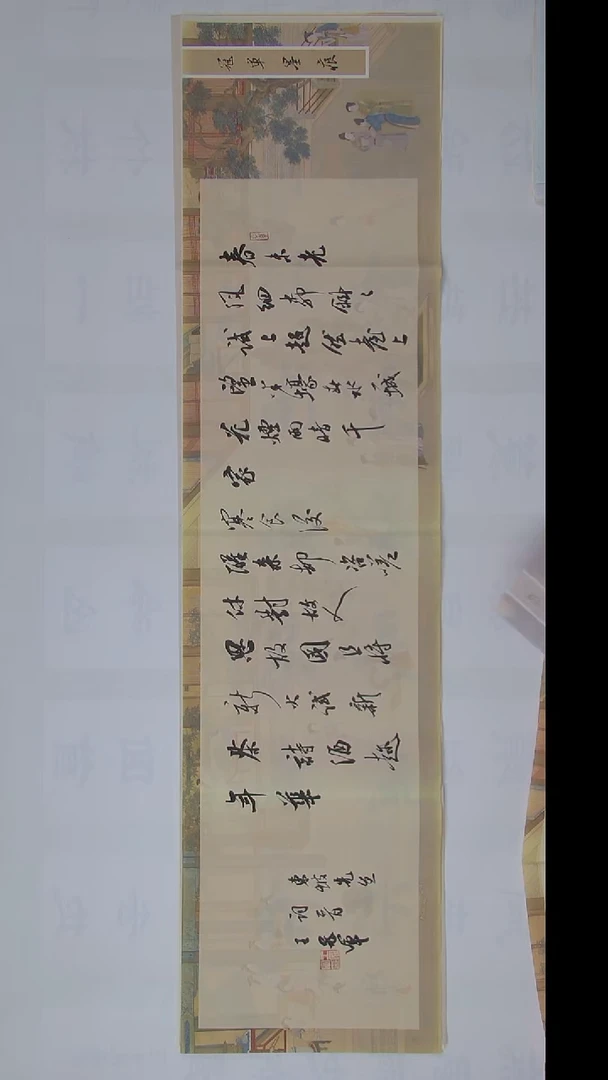 冠軍墨痕
春未老
風細柳斜斜
試上超然臺上
望半壕春水一城
花煙雨暗千
家
寒食後
醒來卻咨嗟
休對故人
思故國且將
新火試新
茶詩酒趁
年華
東坡先生
詞一首
王冠軍